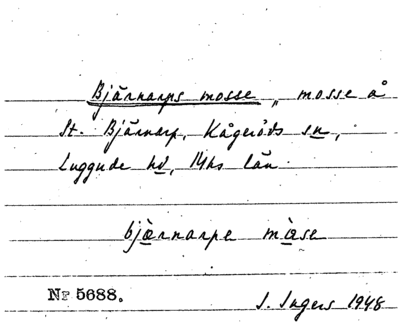 Bjärnarps mosse, mosse å
St. Bjärnarp, Kågeröds sn,
Luggude hd, Mhs län.
bjærnarpe måse
Nr 5688.
I. Ingers 1948